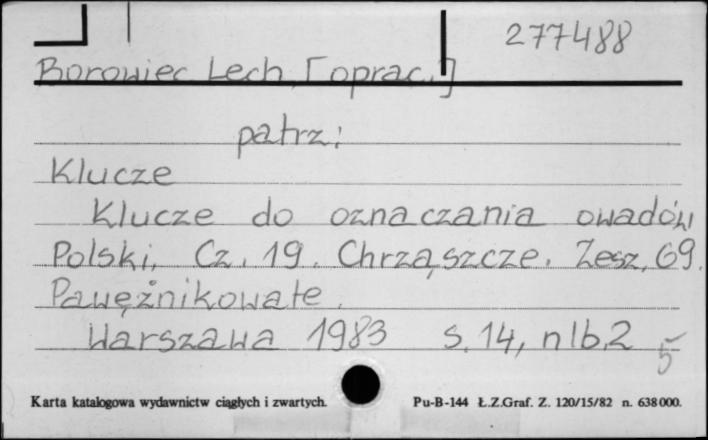 277488
Borowiec Lech [oprac.]
patrz:
Klucze
Klucze do oznaczania owadów
Polski, Cz. 19. Chrząszcze. Zesz. 69.
Pawężnikowate.
Warszawa 1983 s. 14, nlb. 2
5
Karta katalogowa wydawnictw ciągłych i zwartych. Pu-B-144 Ł.Z.Graf. Z. 120/15/82 n. 638000.